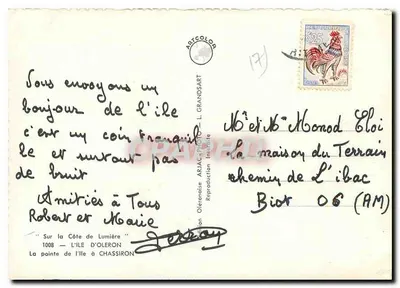 Vous envoyons un
bonjour de l'ile
c'est un coin tranquil
le et surtout pas
de bruit
Amitiés à Tous
Robert et Marie
"Sur la Côte de Lumière"
1008 — L'ILE D'OLERON
La pointe de l'Ile à CHASSIRON
ARTCOLOR
L. GRANDSART
Reproduction
17)
Mr et Me Monod Eloi
La maison du Terrain
chemin de L'ibac
Biot 06 (AM)